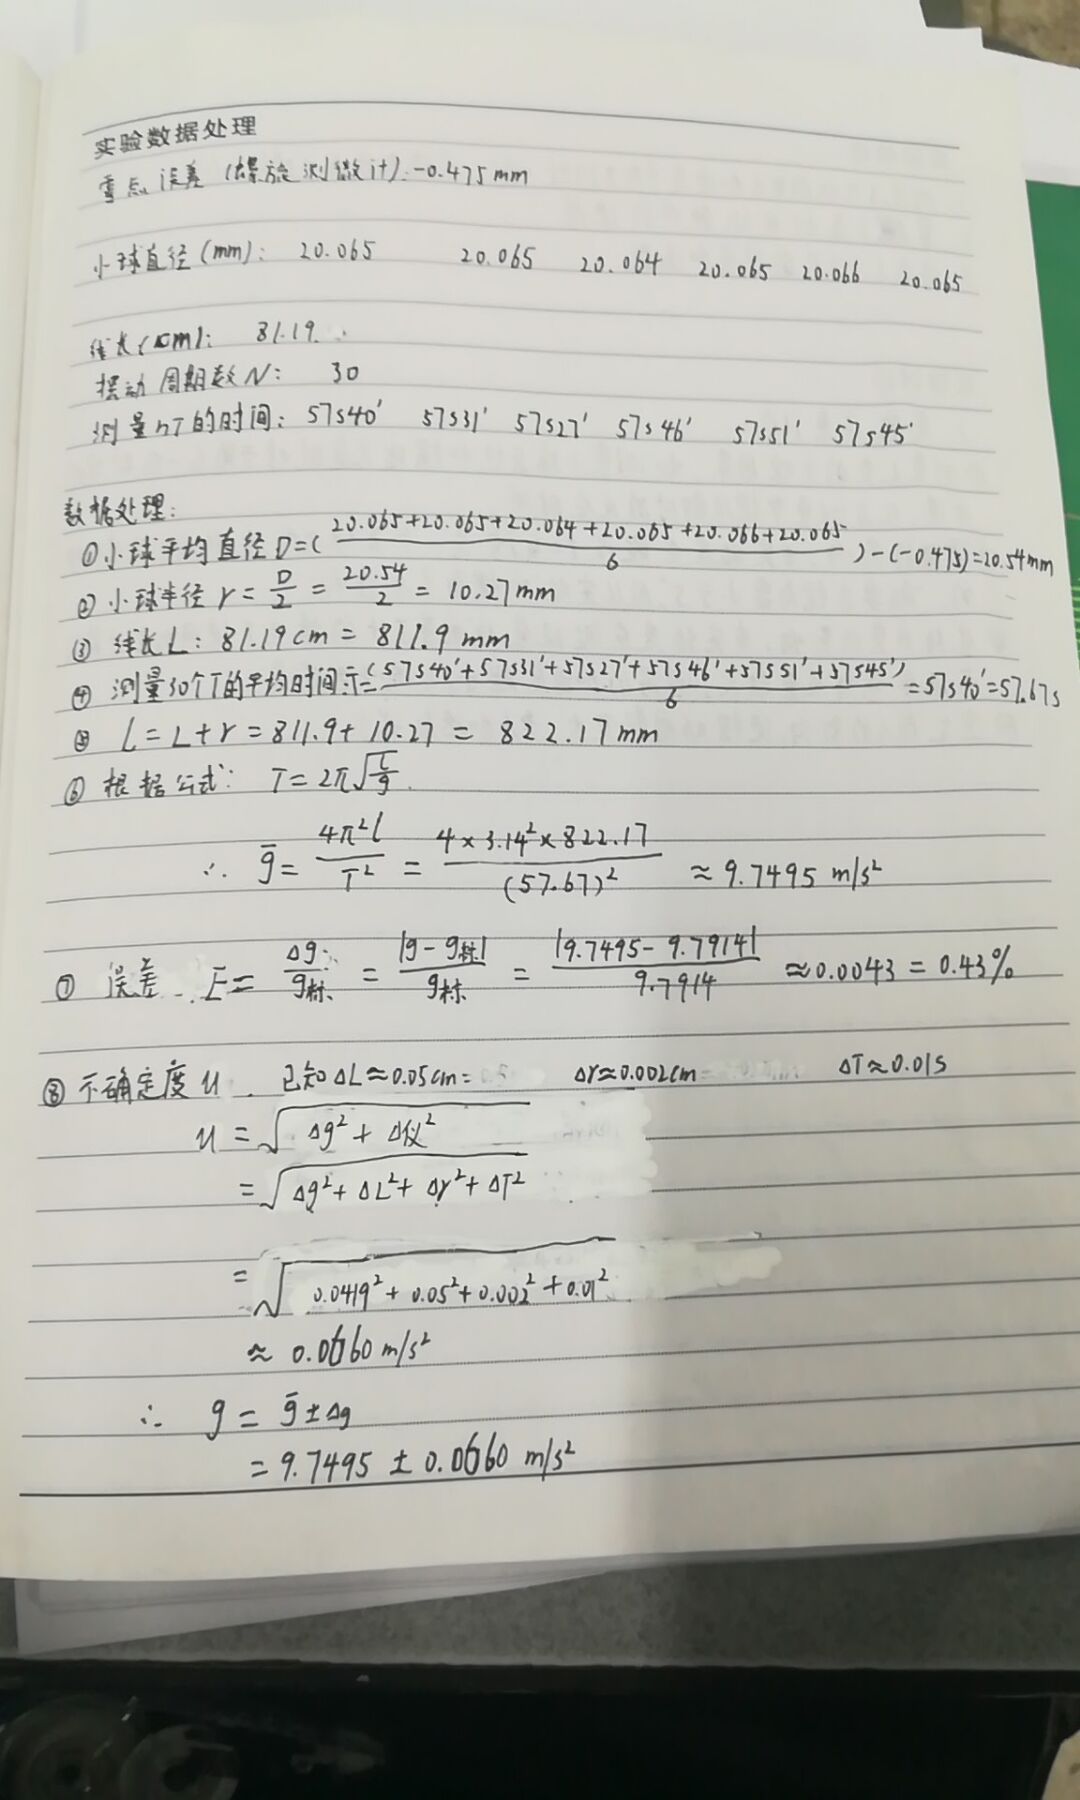 实验数据处理
零点误差(螺旋测微计):-0.475mm
小球直径(mm): 20.065 20.065 20.064 20.065 20.066 20.065
线长(cm): 81.19
摆动周期数N: 30
测量nT的时间: 57s40' 57s31' 57s27' 57s46' 57s51' 57s45'
数据处理:
①小球平均直径D=(20.065+20.065+20.064+20.065+20.066+20.065/6)-(-0.475)=20.54mm
②小球半径r=D/2=20.54/2=10.27mm
③线长L:81.19cm=811.9mm
④测量30个T的平均时间T=(57s40'+57s31'+57s27'+57s46'+57s51'+57s45')/6=57s40'=57.67s
⑤ l=L+r=811.9+10.27=822.17mm
⑥根据公式: T=2π√(l/g)
∴ ḡ=4π²l/T²=4×3.14²×822.17/(57.67)²≈9.7495 m/s²
⑦误差 E=Δg/g标=|g-g标|/g标=|9.7495-9.7914|/9.7914≈0.0043=0.43%
⑧不确定度u. 已知ΔL≈0.05cm= Δr≈0.002cm ΔT≈0.01s
u=√(Δg²+Δ仪²)
=√(Δg²+ΔL²+Δr²+ΔT²)
=√(0.0419²+0.05²+0.002²+0.01²)
≈0.0660 m/s²
∴ g=ḡ±Δg
=9.7495±0.0660 m/s²